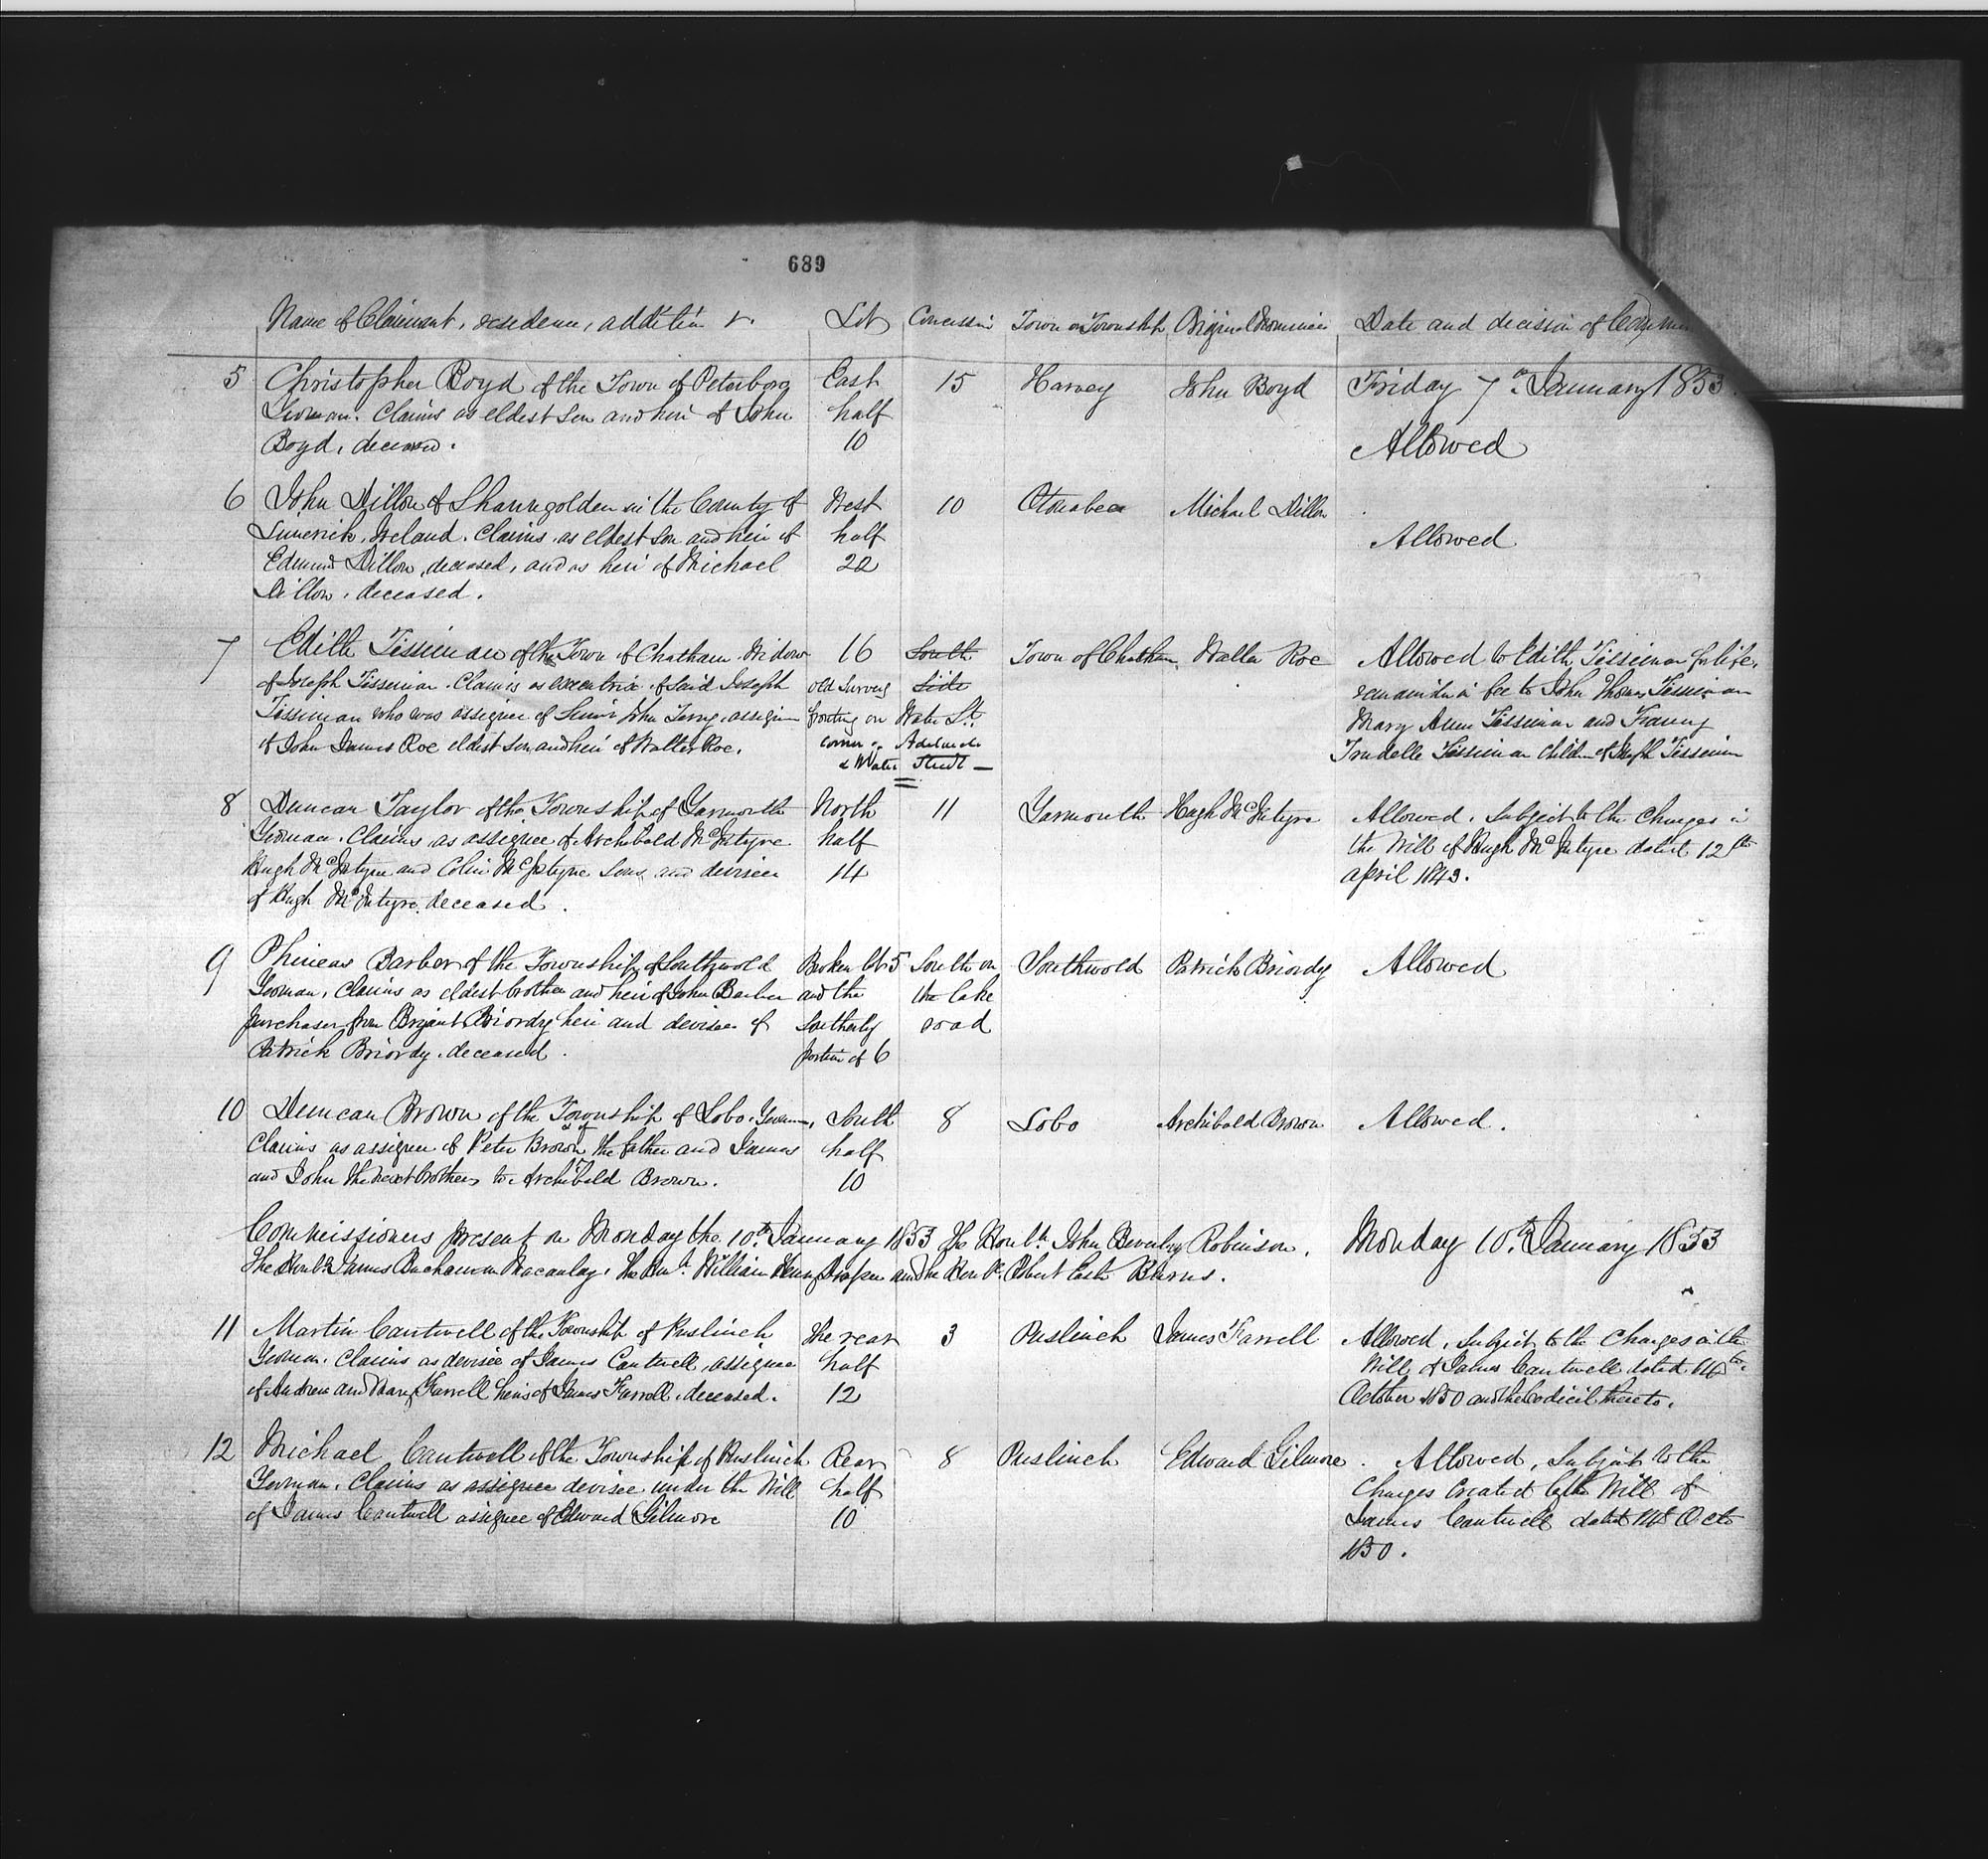 689
Name of Claimant, residence, addition &. Lot Concession Town or Township Original Nominee Date and decision of
5 Christopher Boyd of the Town of Peterboro East 15 Harvey John Boyd Friday 7th January 1853
Yeoman. Claims as eldest son and heir of John half
Boyd, deceased. 10 Allowed
6 John Dillon of Shannagolden in the County of West 10 Otonabee Michael Dillon
Limerick, Ireland. Claims as eldest son and heir of half Allowed
Edmund Dillon, deceased, and as heir of Michael 22
Dillon, deceased.
7 Edith Tissiman of the Town of Chatham Widow 16 South Town of Chatham Walter Roe Allowed to Edith Tissiman for life,
of Joseph Tissiman. Claims as executrix of said Joseph old survey Side remainder in fee to John Thomas Tissiman
Tissiman who was assignee of John Terry, assignee fronting on Water St. Mary Ann Tissiman and Fanny
of John James Roe eldest son and heir of Walter Roe. corner of Adelaide Trudelle Tissiman children of Joseph Tissiman
& Water Street
8 Duncan Taylor of the Township of Yarmouth North 11 Yarmouth Hugh McIntyre Allowed, Subject to the Charges in
Yeoman. Claims as assignee of Archibald McIntyre half the Will of Hugh McIntyre dated 12th
Hugh McIntyre and Colin McIntyre Sons and devisees 14 April 1843.
of Hugh McIntyre, deceased.
9 Phineas Barber of the Township of Southwold Broken lot 5 South on Southwold Patrick Briordy Allowed
Yeoman, Claims as eldest brother and heir of John Barber and the the lake
purchaser from Bryant Briordy heir and devisee of Southerly road
Patrick Briordy, deceased. portion of 6
10 Duncan Brown of the Township of Lobo, Yeoman, South 8 Lobo Archibald Brown Allowed.
Claims as assignee of Peter Brown the father and James half
and John the next brothers to Archibald Brown. 10
Commissioners present on Monday the 10th January 1853 The Honble. John Beverley Robinson, Monday 10th January 1853
The Honble. James Buchanan Macaulay, The Honble. William Henry Draper and the Honble. Robert Easton Burns.
11 Martin Cantwell of the Township of Puslinch The rear 3 Puslinch James Farrell Allowed, Subject to the Charges in the
Yeoman. Claims as devisee of James Cantwell, assignee half Will of James Cantwell dated
of Andrew and Mary Farrell heirs of James Farrell, deceased. 12 October 1850 and the Codicil thereto.
12 Michael Cantwell of the Township of Puslinch Rear 8 Puslinch Edward Gilmore. Allowed, Subject to the
Yeoman. Claims as assignee devisee under the Will half Charges Created by the Will of
of James Cantwell assignee of Edward Gilmore 10 James Cantwell dated Octr
1850.